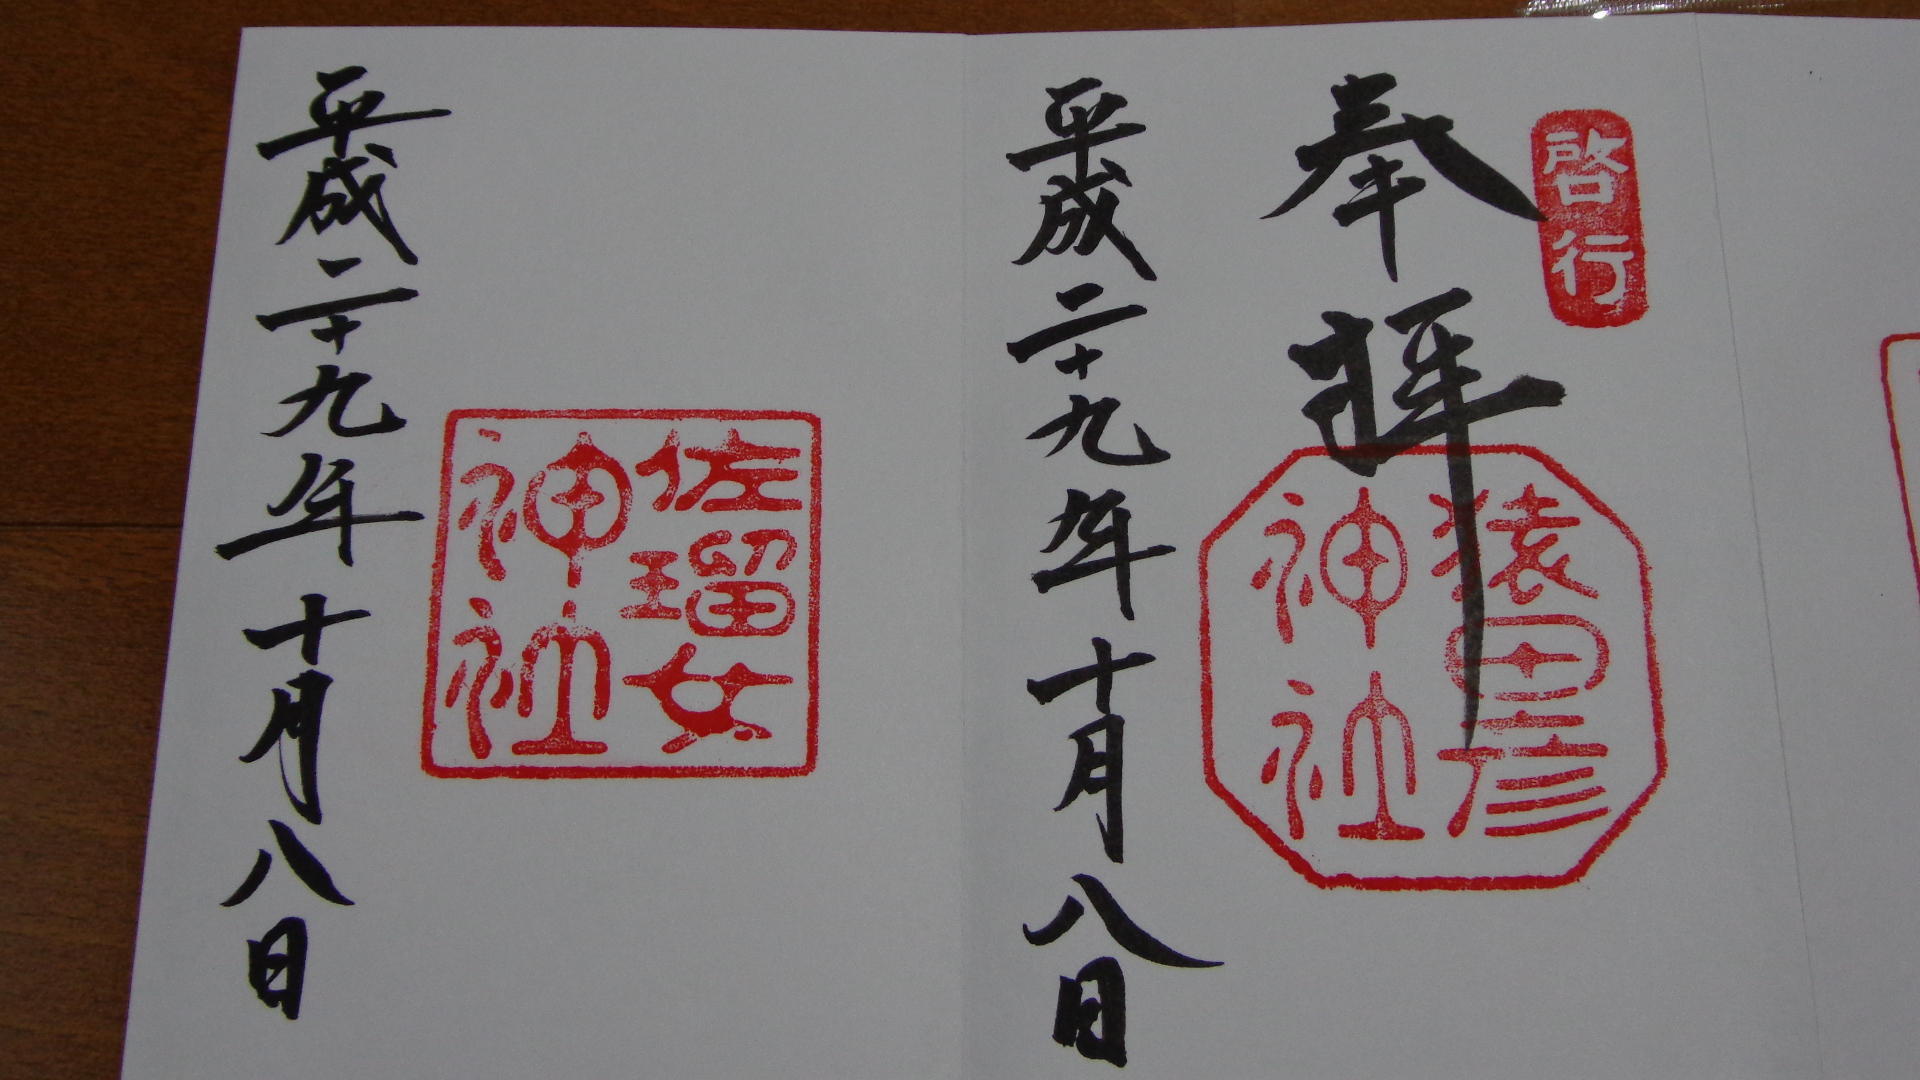 啓行
奉拝
猿田彦
神社
平成二十九年十月八日
佐瑠女
神社
平成二十九年十月八日